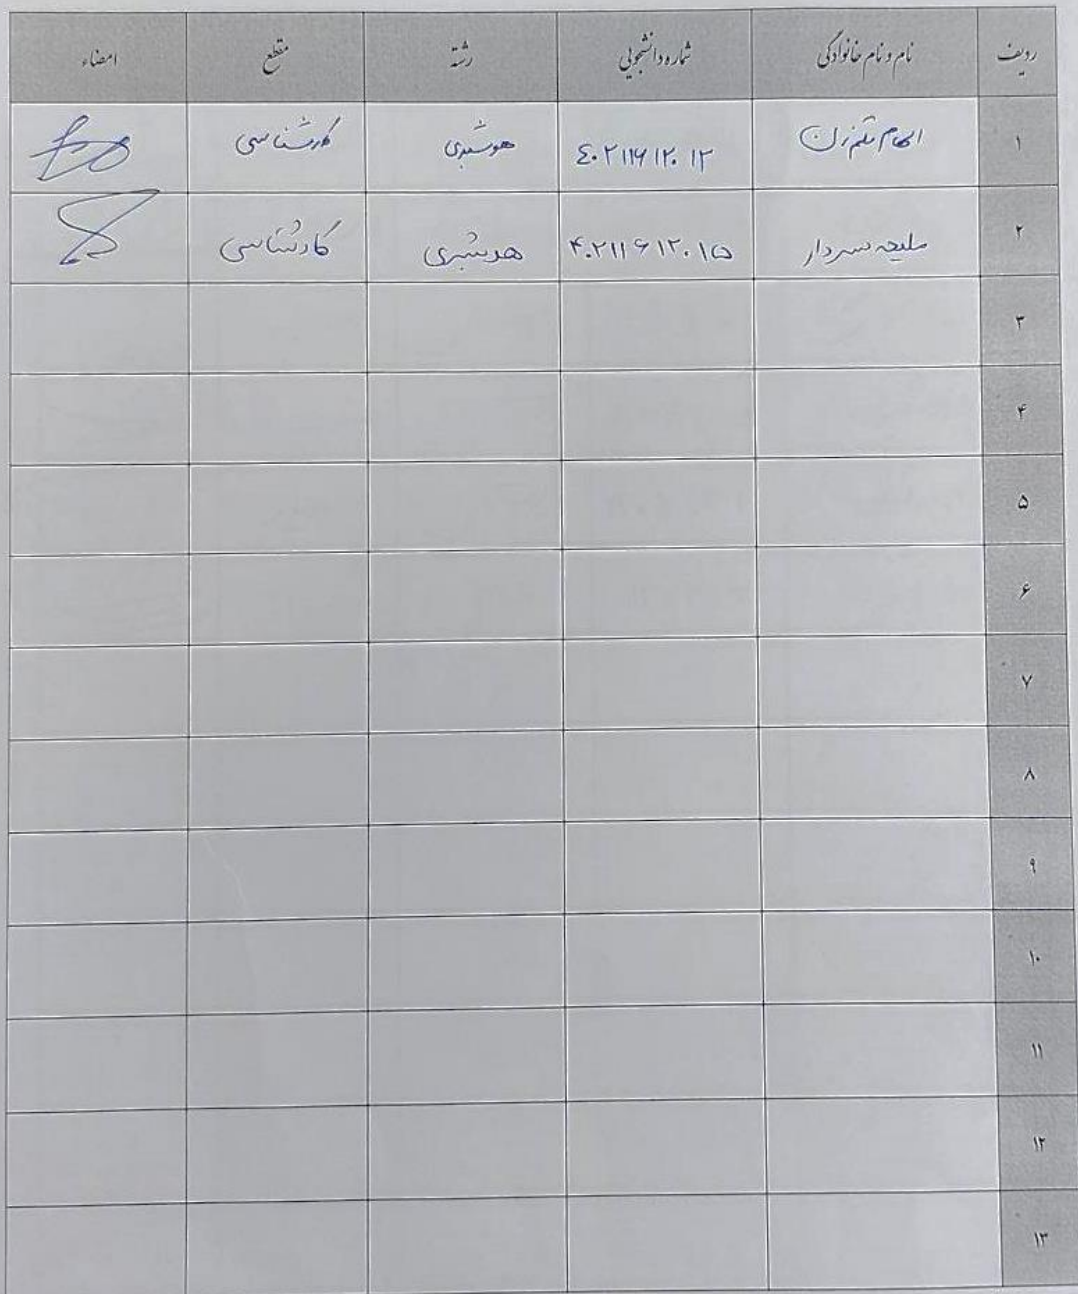 ردیف نام و نام خانوادگی شماره دانشجویی رشته مقطع امضاء
۱ الهام قلم زن ۴۰۲۱۱۶۱۲۰۱۲ هوشبری کارشناسی
۲ ملیحه سردار ۴۰۲۱۱۶۱۲۰۱۵ هوشبری کارشناسی
۳
۴
۵
۶
۷
۸
۹
۱۰
۱۱
۱۲
۱۳